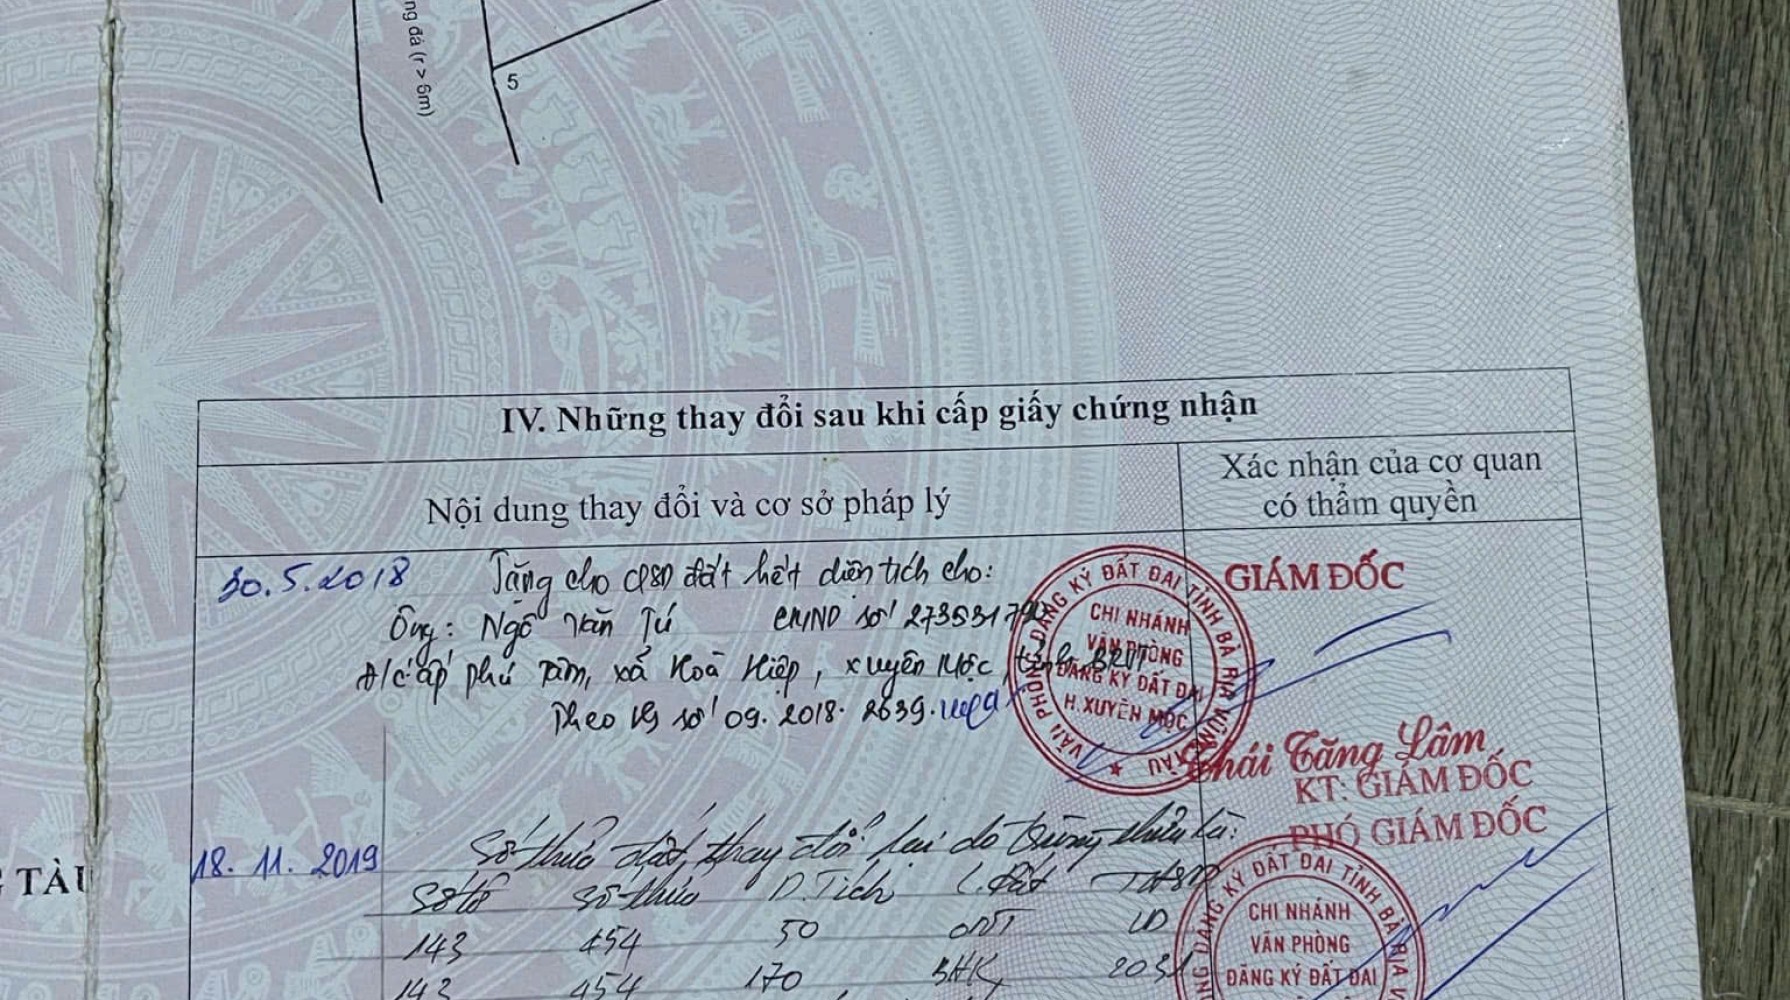 ng đá (r > 6m)
5
IV. Những thay đổi sau khi cấp giấy chứng nhận
Nội dung thay đổi và cơ sở pháp lý
Xác nhận của cơ quan
có thẩm quyền
30.5.2018 Tặng cho QSD đất hết diện tích cho:
Ông: Ngô Văn Tú CMND số
Đ/c: ấp Phú Tâm, xã Hoà Hiệp, Xuyên Mộc, tỉnh BRVT
Theo HS số 09.2018.2639
GIÁM ĐỐC
VĂN PHÒNG ĐĂNG KÝ ĐẤT ĐAI TỈNH BÀ RỊA VŨNG TÀU
CHI NHÁNH
VĂN PHÒNG
ĐĂNG KÝ ĐẤT ĐAI
H. XUYÊN MỘC
Thái Tăng Lâm
KT. GIÁM ĐỐC
PHÓ GIÁM ĐỐC
TÀU
18.11.2019 Số thửa đất thay đổi lại do trùng thửa là:
Số tờ số thửa D.Tích L.Đất
143 454 50 ONT LD
143 454 170 BHK
ĐĂNG KÝ ĐẤT ĐAI TỈNH BÀ RỊA V
CHI NHÁNH
VĂN PHÒNG
ĐĂNG KÝ ĐẤT ĐAI